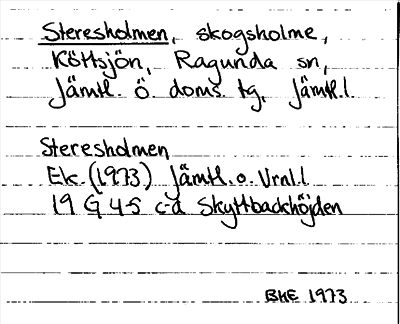 Steresholmen, skogsholme,
Köttsjön, Ragunda sn,
Jämtl. ö. doms. tg, Jämtl.l.
Steresholmen
Ek. (1973) Jämtl.o.Vrnl.l.
19 G 4-5 c-d Skyttbackhöjden
BHE 1973